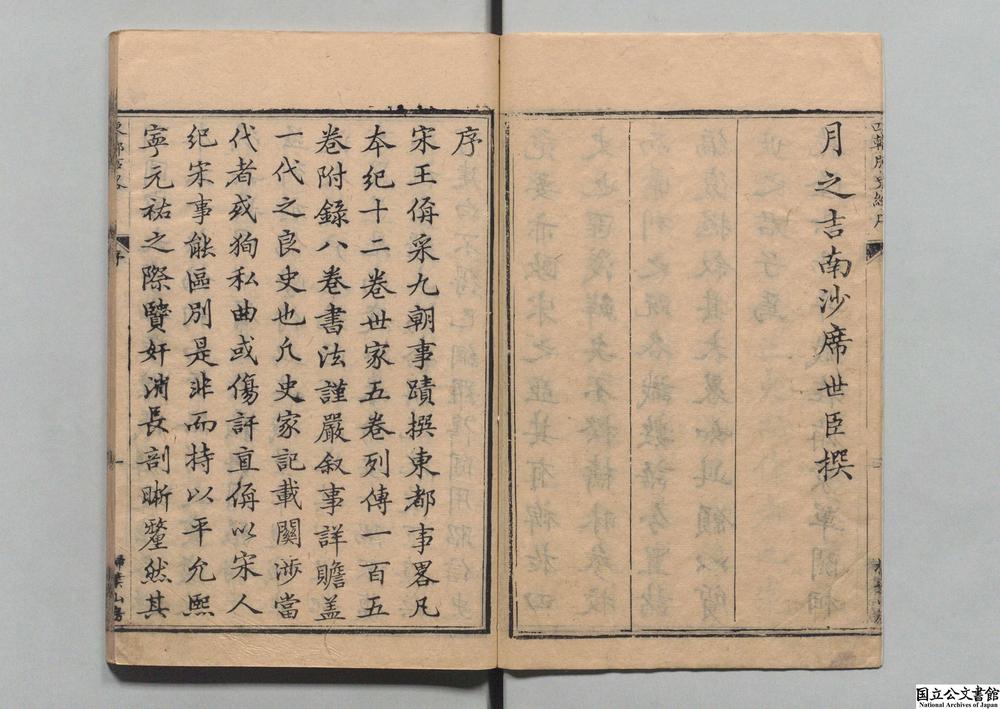 月之吉南沙席世臣撰
序
宋王偁采九朝事蹟撰東都事畧凡
本紀十二卷世家五卷列傳一百五
卷附錄八卷書法謹嚴叙事詳贍盖
一代之良史也凢史家記載關涉當
代者或狥私曲或傷訐直偁以宋人
紀宋事能區別是非而持以平允熙
寕元祐之際賢奸消長剖晣犛然其
東都事畧
序
一
掃葉山房
国立公文書館
National Archives of Japan